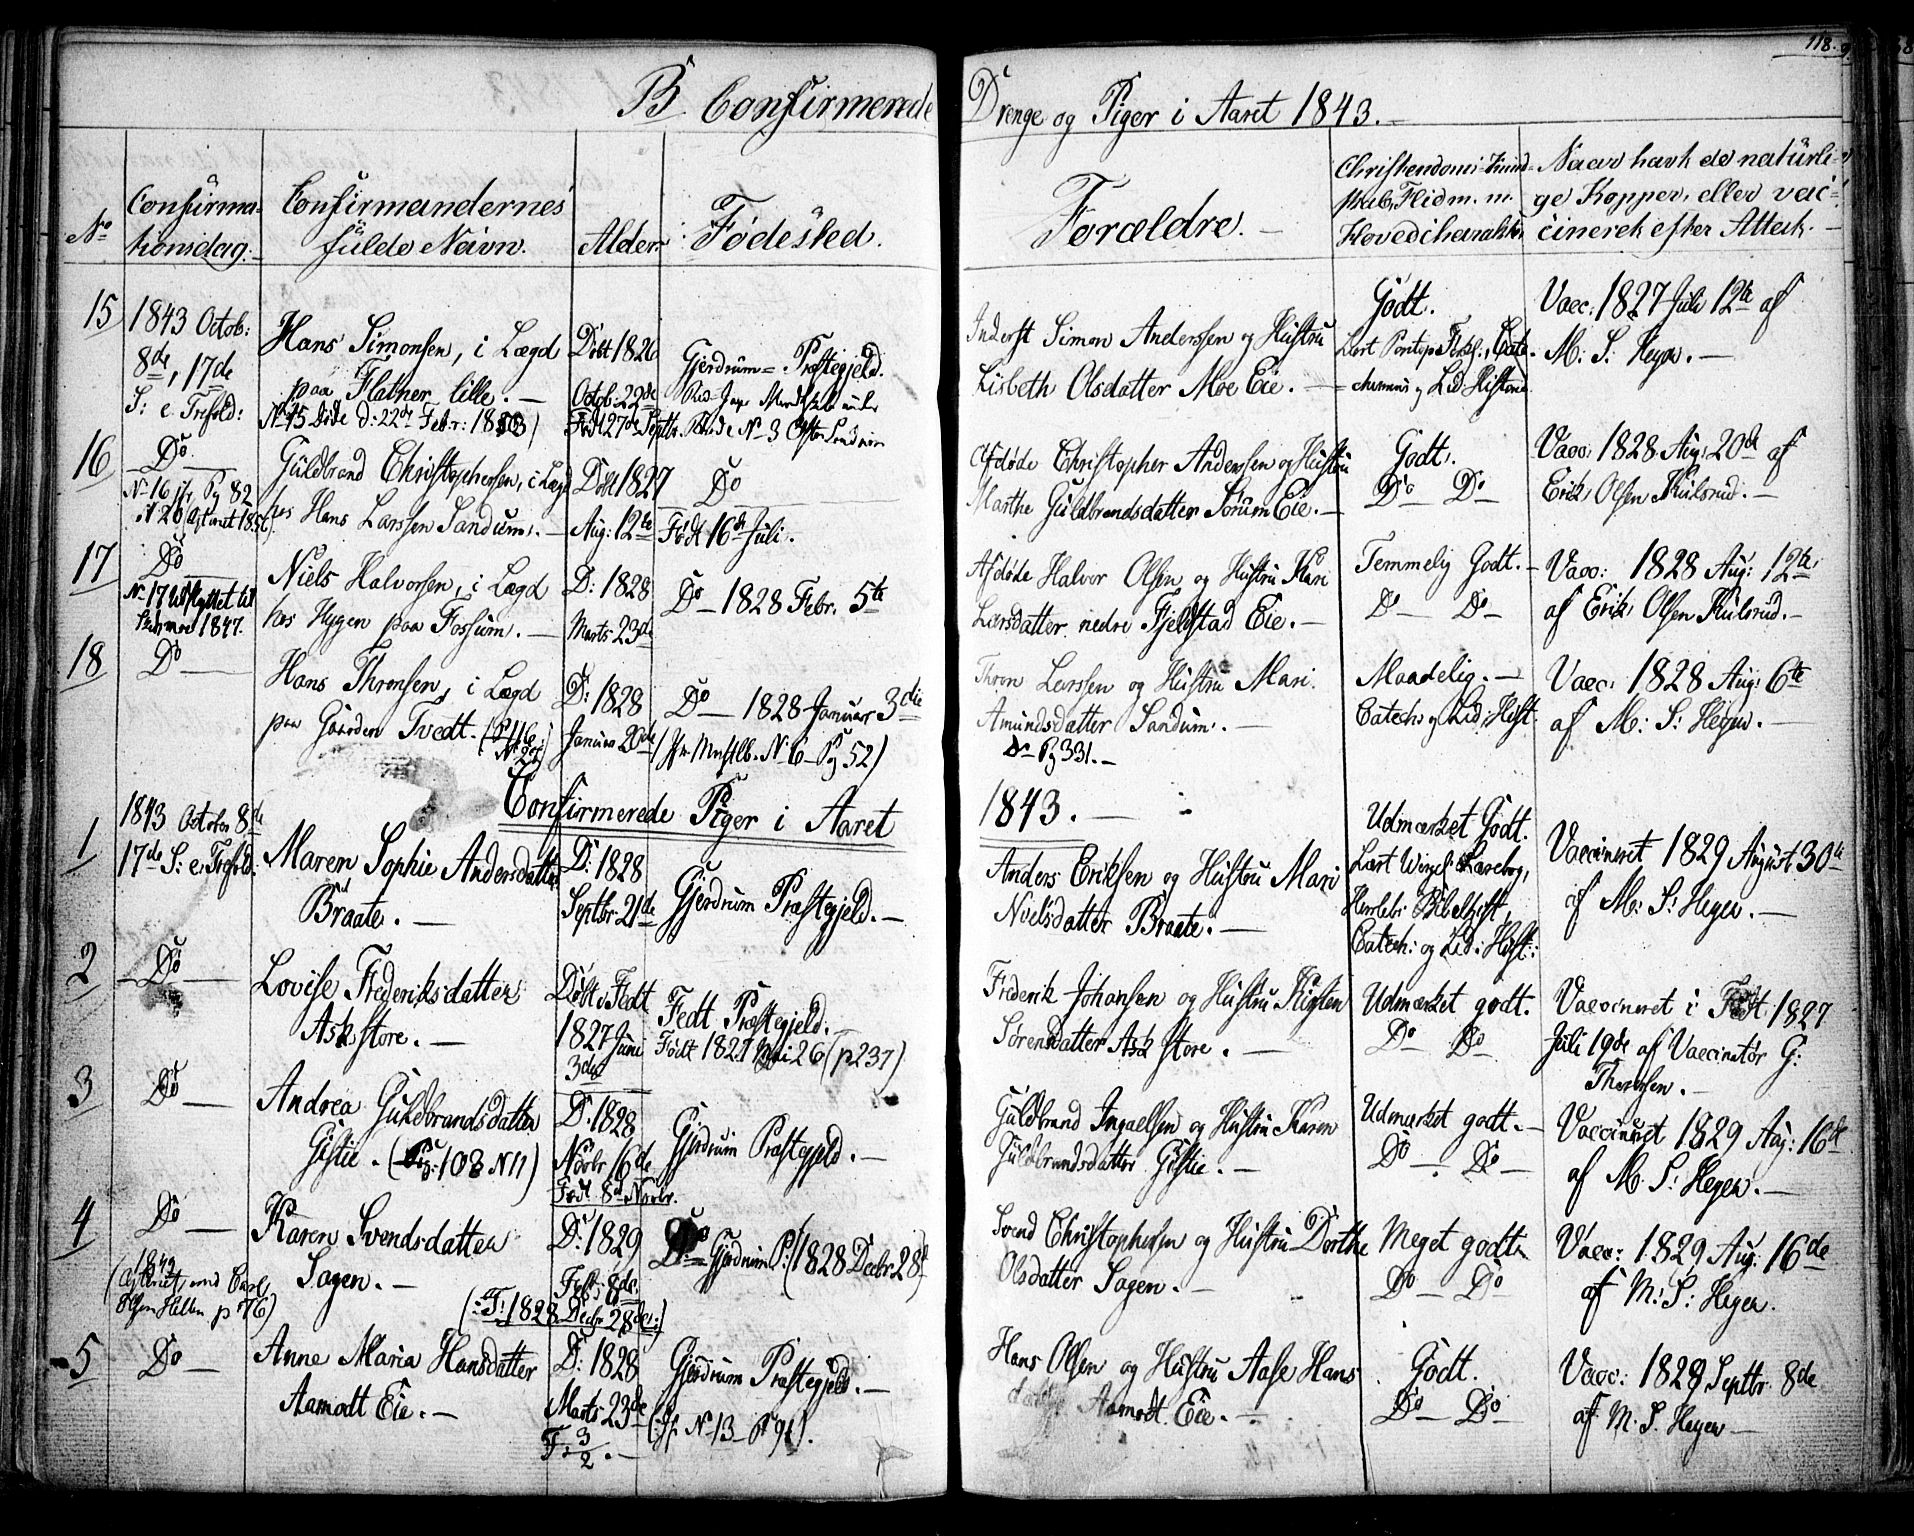 118.
B Confirmerede Drenge og Piger i Aaret 1843.
No
Confirma-
tionsdag.
Confirmandernes
fulde Navn.
Alder.
Fødested.
Forældre.
Christendoms-Kund-
skab, Flid m. m.
Hovedcharakter
Naar havt de naturli-
ge Kopper, eller vac-
cineret efter Attest.
15
1843 Octob:
8de, 17de
S: e. Trefold:
Hans Simonsen, i Lægd
paa Flatner lille.
No 15 Døde d: 22de Febr: 18
Døbt 1826
Octob: 22de
Født 27de Septbr.
Gjerdrum Præstegjeld.
No 3
Inderst Simon Anderssen og Hustru
Lisbeth Olsdatter Moe Eie.
Godt.
Lært Pontop. Forkl:, Cate-
chismus og Lid: Historie
Vacc: 1827 Juli 12te af
M: S: Heyen.
16
Do
No 16 Pg 82
No 20
Guldbrand Christophersen, i Lægd
hos Hans Larssen Sandum.
Døbt 1827
Aug: 12te
Do
Født 16de Juli.
Afdøde Christopher Anderssen og Hustru
Marthe Guldbrandsdatter Sørum Eie.
Godt.
Do Do
Vacc: 1828 Aug: 20de af
Erik Olsen Kulsrud.
17
Do
No 17 udflyttet til
1847.
Niels Halvorsen, i Lægd
hos Hygen paa Fossum.
D: 1828
Marts 23de
Do 1828 Febr. 5te
Afdøde Halvor Olsen og Hustru Kari
Larsdatter nedre Fjeldstad Eie.
Temmelig Godt.
Do Do
Vacc: 1828 Aug: 12te
af Erik Olsen Kulsrud.
18
Do
Hans Thronsen, i Lægd
paa Gaarden Tvedt.
D: 1828
Januar 20de
Do 1828 Januar 3die
No 6 Pg 52)
Thron Larssen og Hustru Mari
Amundsdatter Sandum.
Do Pg 331.
Maadelig.
Catech: og Lid: Hist
Vacc: 1828 Aug: 6te
af M: S: Heyen.
Confirmerede Piger i Aaret 1843.
1
1843 October 8de
17de S: e. Trefold:
Maren Sophie Andersdatter
Braate.
D: 1828
Septbr 21de
Gjerdrum Præstegjeld.
Anders Eriksen og Hustru Mari
Nielsdatter Braate.
Udmærket Godt.
Lært Lærebog,
Herslebs Bibelhist,
Catech: og Lid: Hist:
Vaccineret 1829 August 30te
af M: S: Heyen.
2
Do
Lovise Frederiksdatter
Ask store.
Døbt i Fedt
1827 Juni
3de
Fedt Præstegjeld.
Født 1827 Mai 26 (p 237)
Frederik Johansen og Hustru Kirsten
Sørensdatter Ask store.
Udmærket godt.
Do Do
Vaccineret i Fedt 1827
Juli 19de af Vaccinatør G:
Thoresen.
3
Do
Andrea Guldbrandsdatter
Gistie. (Pg: 108 N 11)
D: 1828
Novbr 16de
Født 8de Novbr.
Gjerdrum Præstegjeld.
Guldbrand Ingaelsen og Hustru Karen
Guldbrandsdatter Gistie.
Udmærket godt.
Do Do
Vaccineret 1829 Aug: 16de
af M. S: Heyen.
4
Do
1849
p 76)
Karen Svendsdatter
Sagen.
(: F: 1828 Decbr 28de :)
D: 1829
Febr: 8de
Do Gjerdrum P: (1828 Decbr 28de
Svend Christophersen og Hustru Dorthe
Olsdatter Sagen.
Meget godt
Do Do
Vacc: 1829 Aug: 16de
af M: S: Heyen.
5
Do
Anne Maria Hansdatter
Aamodt Eie.
D: 1828
Marts 23de
F: 3/2.
Gjerdrum Præstegjeld.
No 13 P 91).
Hans Olsen og Hustru Aase Hans
datter Aamodt Eie.
Godt.
Do Do
Vacc: 1829 Septbr. 8de
af M. S. Heyen